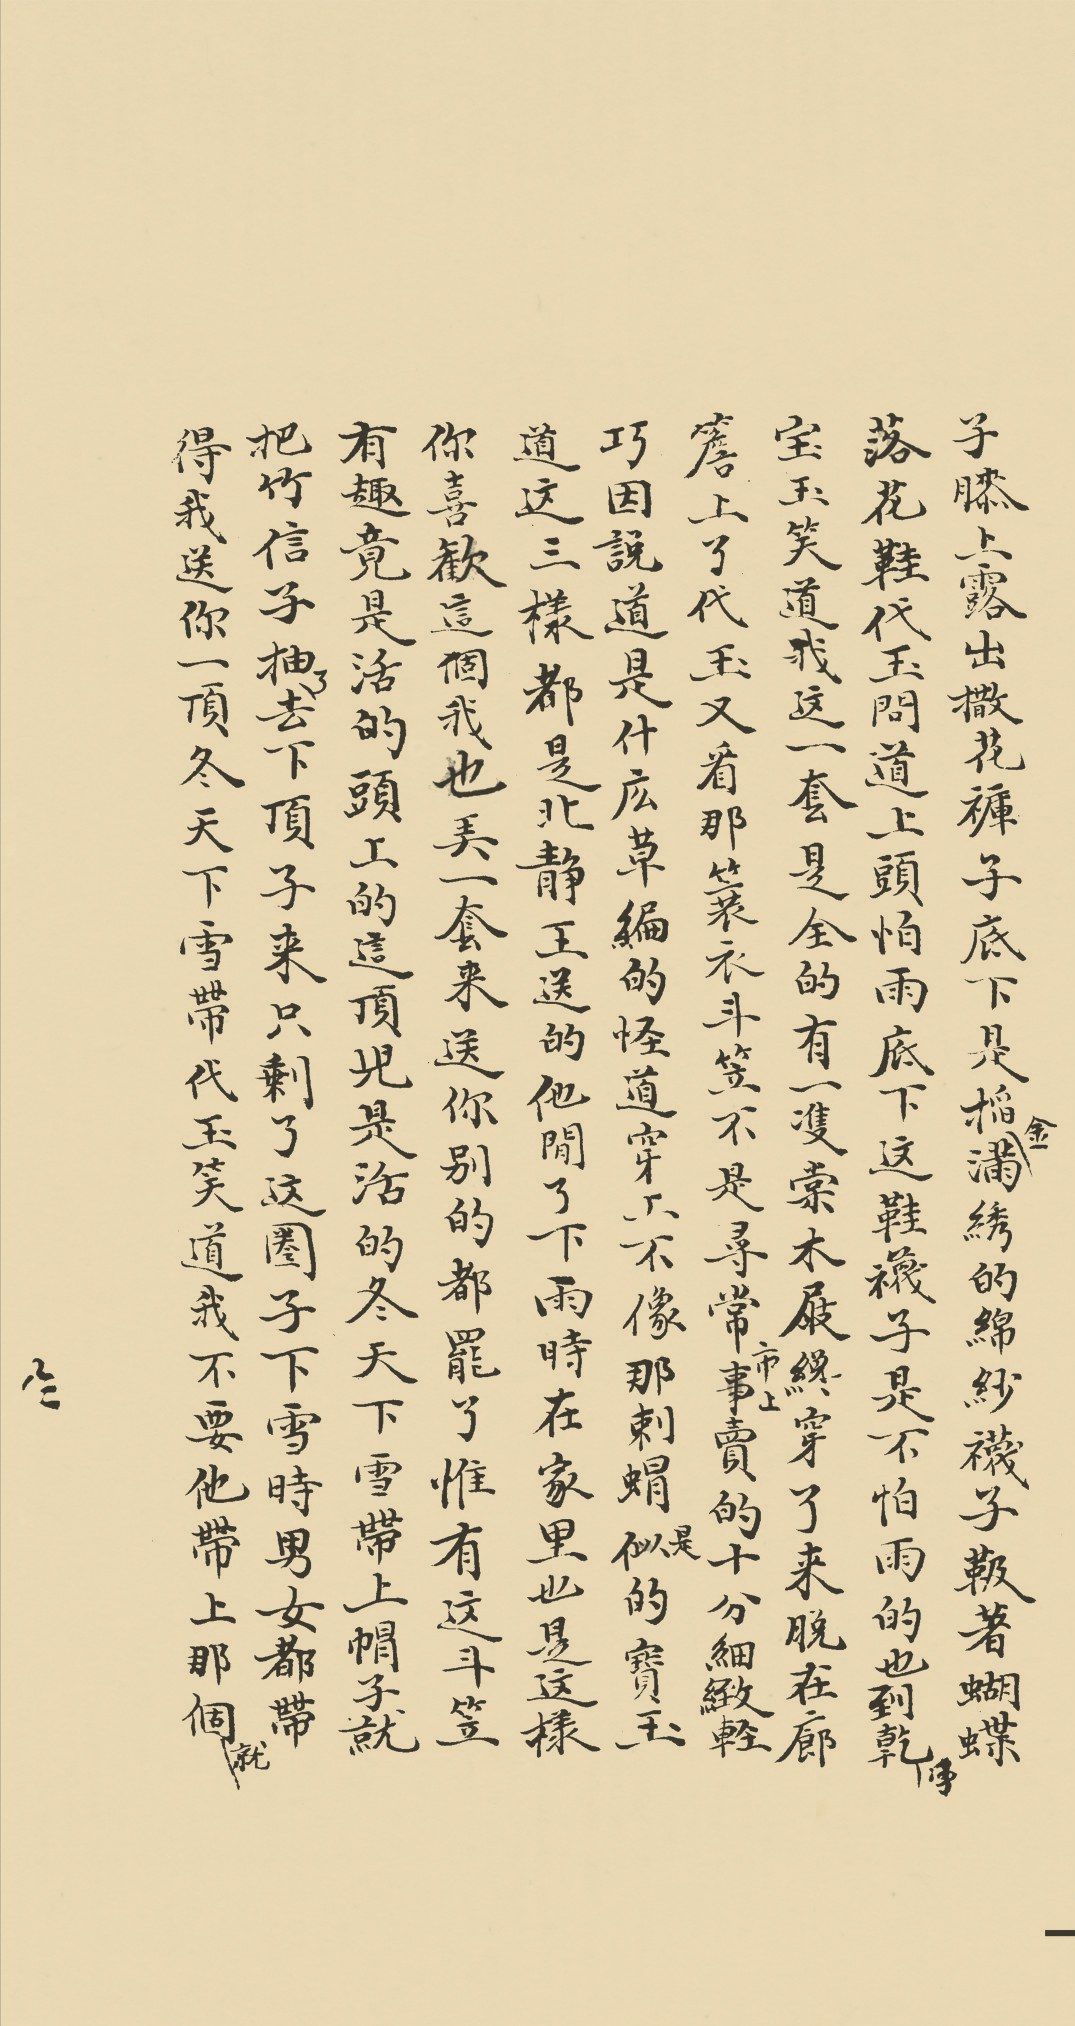 子膝上露出撒花褲子底下是稻金滿綉的綿紗襪子靸著蝴蝶
落花鞋代玉問道上頭怕雨底下这鞋襪子是不怕雨的也到乾净
宝玉笑道我这一套是全的有一隻棠木屐纔穿了来脱在廊
簷上了代玉又看那簑衣斗笠不是尋常市上事賣的十分細緻軽
巧因説道是什庅草編的怪道穿上不像那刺蝟是似的寶玉
道这三樣都是北静王送的他閒了下雨時在家里也是这樣
你喜歡這個我也弄一套来送你别的都罷了惟有这斗笠
有趣竟是活的頭上的這頂兒是活的冬天下雪帶上帽子就
把竹信子抽了去下頂子来只剩了这圈子下雪時男女都帶
得我送你一頂冬天下雪帶代玉笑道我不要他帶上那個就